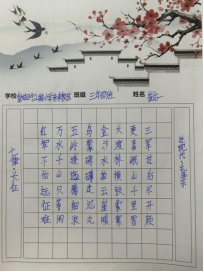 学校 班级 姓名
七律 长征
红军不怕远征难
万水千山只等闲
五岭逶迤腾细浪
乌蒙磅礴走泥丸
金沙水拍云崖暖
大渡桥横铁索寒
更喜岷山千里雪
三军过后尽开颜
近现代 毛泽东